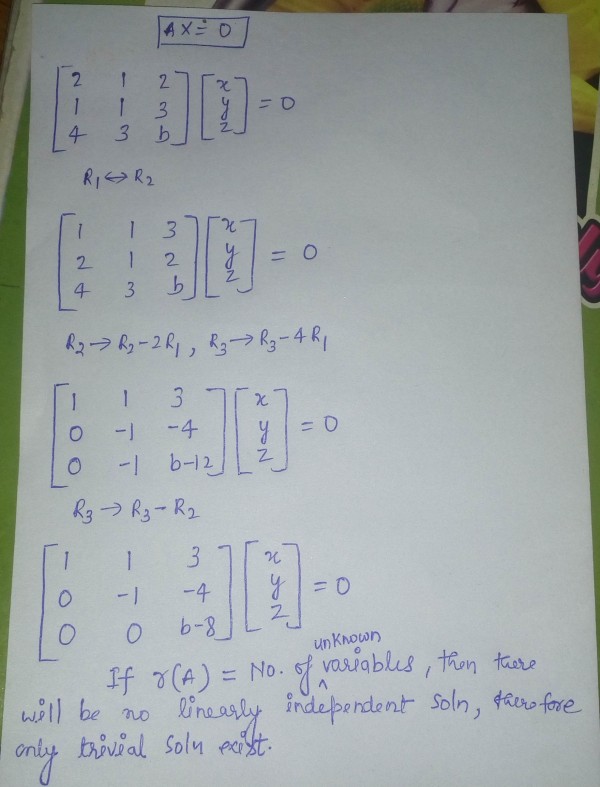 AX = 0
[2 1 2] [x]
[1 1 3] [y] = 0
[4 3 b] [z]
R₁ ↔ R₂
[1 1 3] [x]
[2 1 2] [y] = 0
[4 3 b] [z]
R₂ → R₂ - 2R₁ , R₃ → R₃ - 4R₁
[1 1 3] [x]
[0 -1 -4] [y] = 0
[0 -1 b-12] [z]
R₃ → R₃ - R₂
[1 1 3] [x]
[0 -1 -4] [y] = 0
[0 0 b-8] [z]
If r(A) = No. of unknown variables, then there
will be no linearly independent soln, therefore
only trivial soln exist.